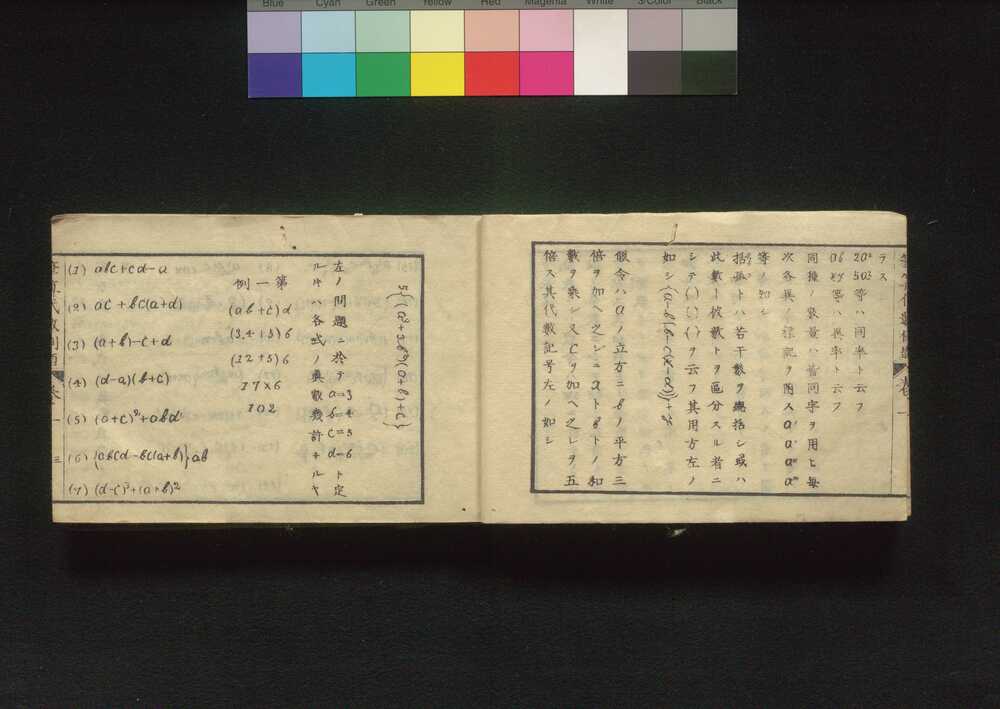 Blue Cyan Green Yellow Red Magenta White 3/Color Black
テス
同種ノ數量ハ皆同字ヲ用ヒ毎
次各異ノ標記ヲ附ス a' a'' a'''
等ノ如シ
括弧トハ若干數ヲ總括シ或ハ
此數ト彼數トヲ區分スル者ニ
シテ( ){ }〔 〕ヲ云フ其用方左ノ
如シ
假令ハaノ立方ニbノ平方三
倍ヲ加ヘ之レニaトbトノ和
數ヲ乘シ又Cヲ加ヘ之レヲ五
倍ス其代數記号左ノ如シ
5{(a³+3b²)(a+b)+c}
左ノ問題ニ於テ a=3 b=4 c=5 d=6 ト定
ルトキハ各式ノ眞數幾許ナルヤ
第一例
(ab+c)d
(3.4+5)6
(12+5)6
17×6
102
(1) abc+cd-a
(2) ac+bc(a+d)
(3) (a+b)-c+d
(4) (d-a)(b+c)
(5) (a+c)²+abd
(6) {abcd-bc(a+b)}ab
(7) (d-c)³+(a+b)²